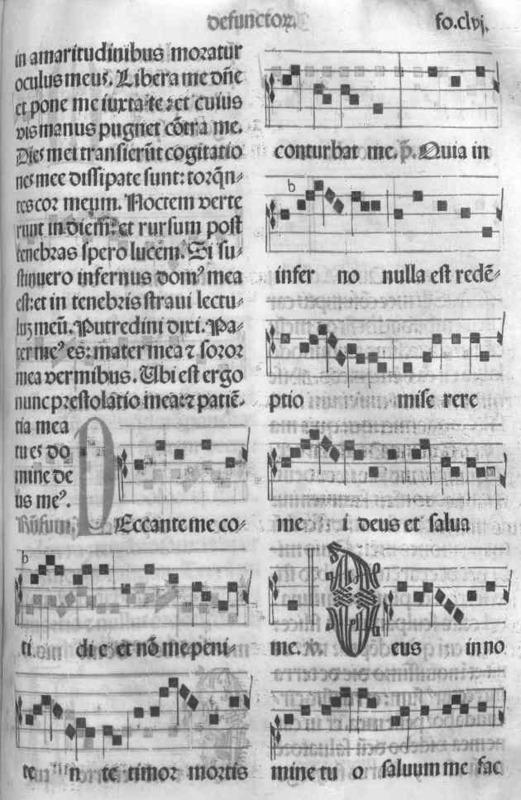 defunctoꝝ.
fo.clvj.
in amaritudinibus moratur
oculus meus. Libera me dñe
et pone me iuxta te: et cuius
vis manus pugnet cõtra me.
Dies mei transierũt cogitatio
nes mee dissipate sunt: torqñ-
tes cor meum. Noctem verte
runt in diem: et rursum post
tenebras spero lucem. Si su-
stinuero infernus domꝰ mea
est: et in tenebris straui lectu-
lũ meũ. Putredini dixi. Pa-
ter meꝰ es: mater mea ⁊ soror
mea vermibus. Ubi est ergo
nunc prestolatio mea: ⁊ patiẽ-
tia mea
tu es do
mine de
us meꝰ.
PEccante me co-
ti di e et nõ me peni-
te n te timor mortis
conturbat me. p̃. Quia in
infer no nulla est redẽ-
ptio mise rere
me i deus et salua
me. Deus in no
mine tu o saluum me fac